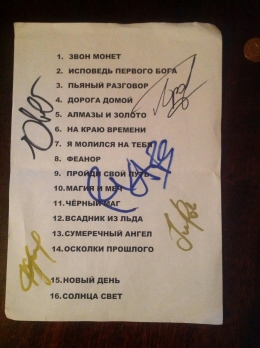 1. ЗВОН МОНЕТ
2. ИСПОВЕДЬ ПЕРВОГО БОГА
3. ПЬЯНЫЙ РАЗГОВОР
4. ДОРОГА ДОМОЙ
5. АЛМАЗЫ И ЗОЛОТО
6. НА КРАЮ ВРЕМЕНИ
7. Я МОЛИЛСЯ НА ТЕБЯ
8. ФЕАНОР
9. ПРОЙДИ СВОЙ ПУТЬ
10. МАГИЯ И МЕЧ
11. ЧЁРНЫЙ МАГ
12. ВСАДНИК ИЗ ЛЬДА
13. СУМЕРЕЧНЫЙ АНГЕЛ
14. ОСКОЛКИ ПРОШЛОГО
15. НОВЫЙ ДЕНЬ
16. СОЛНЦА СВЕТ